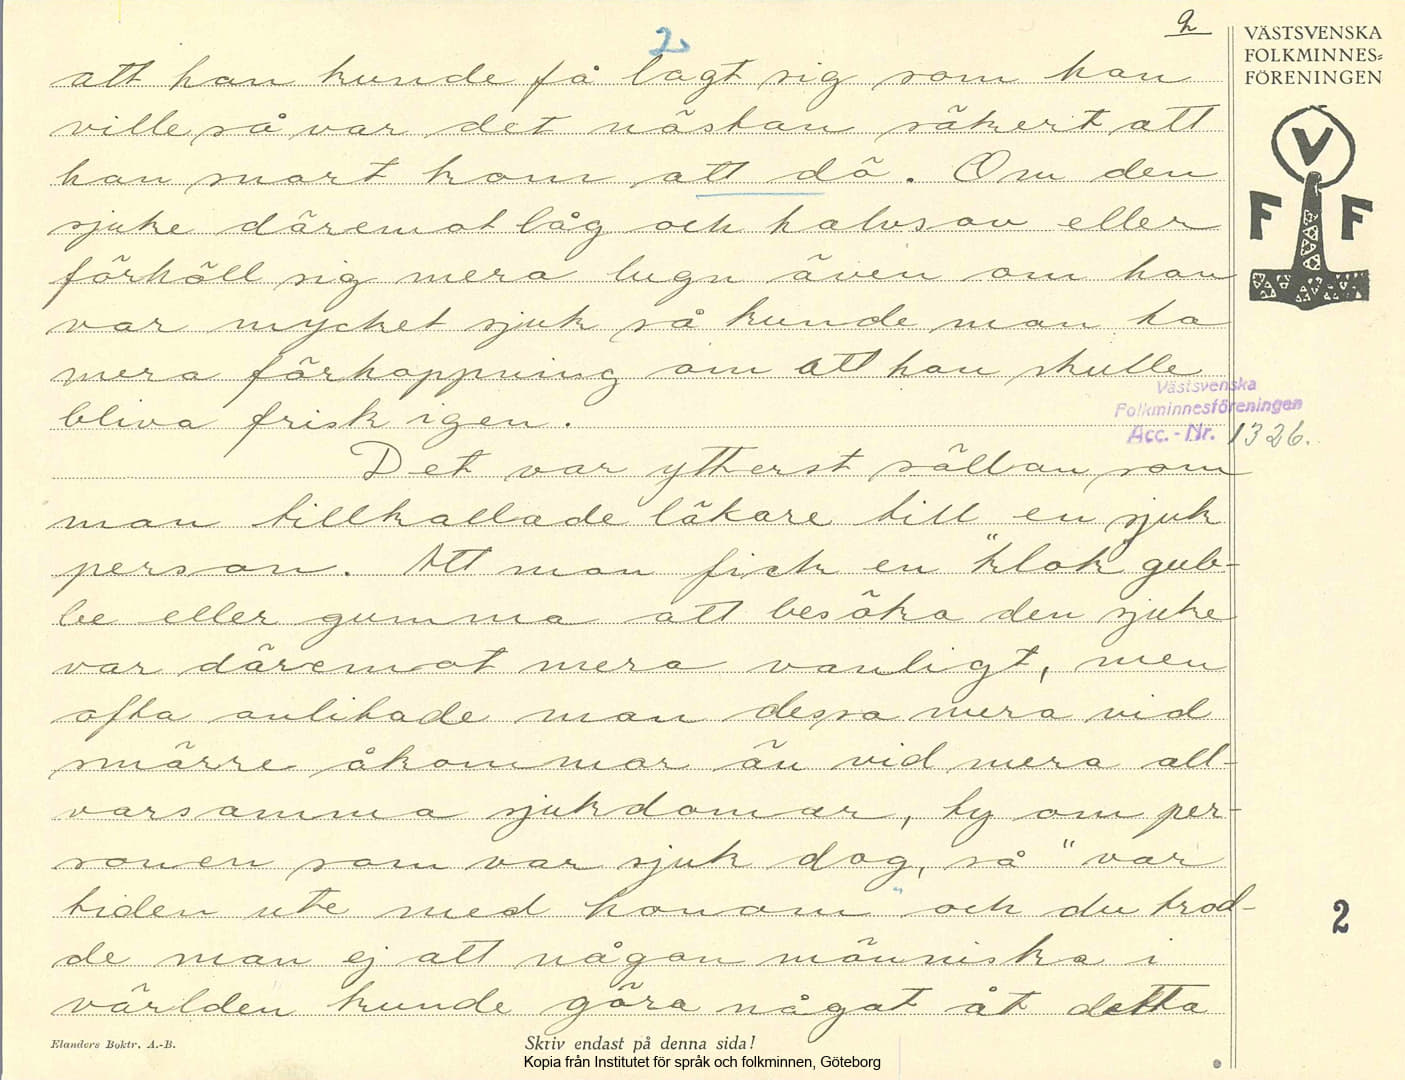 2
2
VÄSTSVENSKA
FOLKMINNES=
FÖRENINGEN
V
F F
att han kunde få lagt sig som han
ville så var det nästan säkert att
han snart kom att dö. Om den
sjuke däremot låg och halvsov eller
förhöll sig mera lugn även om han
var mycket sjuk så kunde man ha
mera förhoppning om att han skulle
bliva frisk igen.
Västsvenska
Folkminnesföreningen
Acc.-Nr. 1326.
Det var ytterst sällan som
man tillkallade läkare till en sjuk
person. Att man fick en "klok gub-
be eller gumma att besöka den sjuke
var däremot mera vanligt, men
ofta anlitade man dessa mera vid
smärre åkommor än vid mera all-
varsamma sjukdomar, ty om per-
sonen som var sjuk dog, så "var
tiden ute med honom" och du trod-
de man ej att någon människa i
världen kunde göra något åt detta
2
Elanders Boktr. A.-B.
Skriv endast på denna sida!
Kopia från Institutet för språk och folkminnen, Göteborg